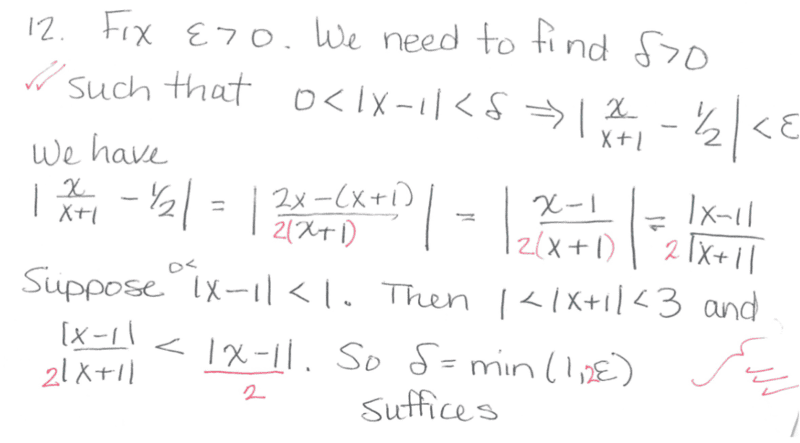 12. Fix ε>0. We need to find δ>0
such that 0<|x-1|<δ ⇒ | x/(x+1) - 1/2 | < ε
We have
| x/(x+1) - 1/2 | = | (2x-(x+1))/(2(x+1)) | = | (x-1)/(2(x+1)) | = |x-1|/(2|x+1|)
Suppose 0<|x-1|<1. Then 1<|x+1|<3 and
|x-1|/(2|x+1|) < |x-1|/2. So δ = min(1,2ε)
suffices